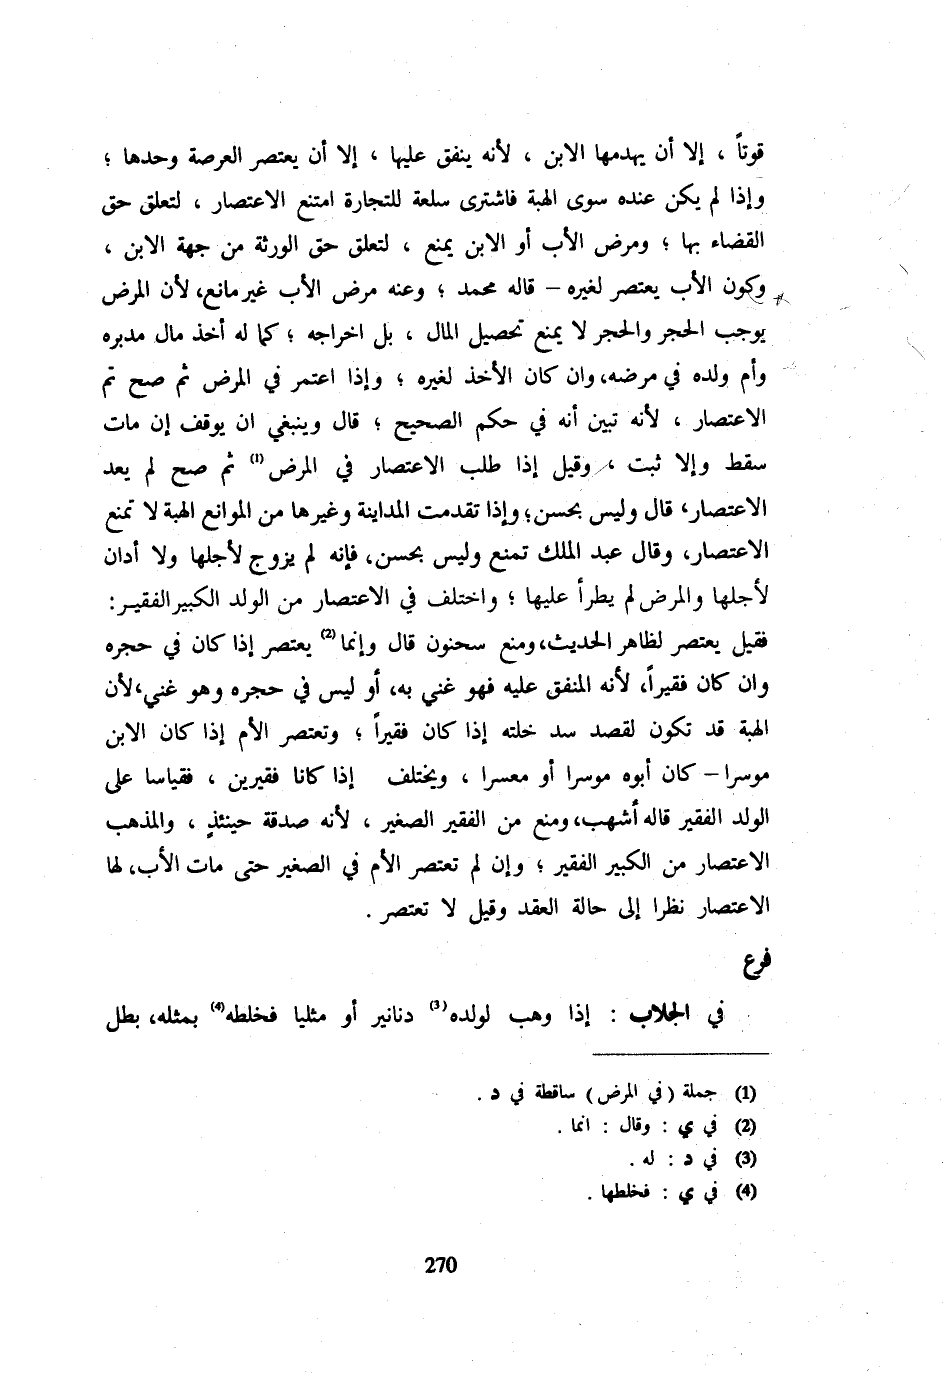 قوتاً ، إلا أن يهدمها الابن ، لأنه ينفق عليها ، إلا أن يعتصر العرصة وحدها ؛
وإذا لم يكن عنده سوى الهبة فاشترى سلعة للتجارة امتنع الاعتصار ، لتعلق حق
القضاء بها ؛ ومرض الأب أو الابن يمنع ، لتعلق حق الورثة من جهة الابن ،
وكون الأب يعتصر لغيره – قاله محمد ؛ وعنه مرض الأب غير مانع، لأن المرض
يوجب الحجر والحجر لا يمنع تحصيل المال ، بل اخراجه ؛ كما له أخذ مال مدبره
وأم ولده في مرضه، وان كان الأخذ لغيره ؛ وإذا اعتمر في المرض ثم صح تم
الاعتصار ، لأنه تبين أنه في حكم الصحيح ؛ قال وينبغي ان يوقف إن مات
سقط وإلا ثبت ، وقيل إذا طلب الاعتصار في المرض(1) ثم صح لم يعد
الاعتصار، قال وليس بحسن؛ وإذا تقدمت المداينة وغيرها من الموانع الهبة لا تمنع
الاعتصار، وقال عبد الملك تمنع وليس بحسن، فإنه لم يزوج لأجلها ولا أدان
لأجلها والمرض لم يطرأ عليها ؛ واختلف في الاعتصار من الولد الكبير الفقير :
فقيل يعتصر لظاهر الحديث، ومنع سحنون قال وإنما(2) يعتصر إذا كان في حجره
وان كان فقيراً، لأنه المنفق عليه فهو غني به، أو ليس في حجره وهو غني، لأن
الهبة قد تكون لقصد سد خلته إذا كان فقيراً ؛ وتعتصر الأم إذا كان الابن
موسرا – كان أبوه موسرا أو معسرا ، ويختلف إذا كانا فقيرين ، فقياسا على
الولد الفقير قاله أشهب، ومنع من الفقير الصغير ، لأنه صدقة حينئذٍ ، والمذهب
الاعتصار من الكبير الفقير ؛ وإن لم تعتصر الأم في الصغير حتى مات الأب، لها
الاعتصار نظرا إلى حالة العقد وقيل لا تعتصر .
فرع
في الجلاب : إذا وهب لولده(3) دنانير أو مثليا فخلطه(4) بمثله، بطل
(1) جملة (في المرض) ساقطة في د .
(2) في ي : وقال : انما .
(3) في د : له .
(4) في ي : فخلطها .
270